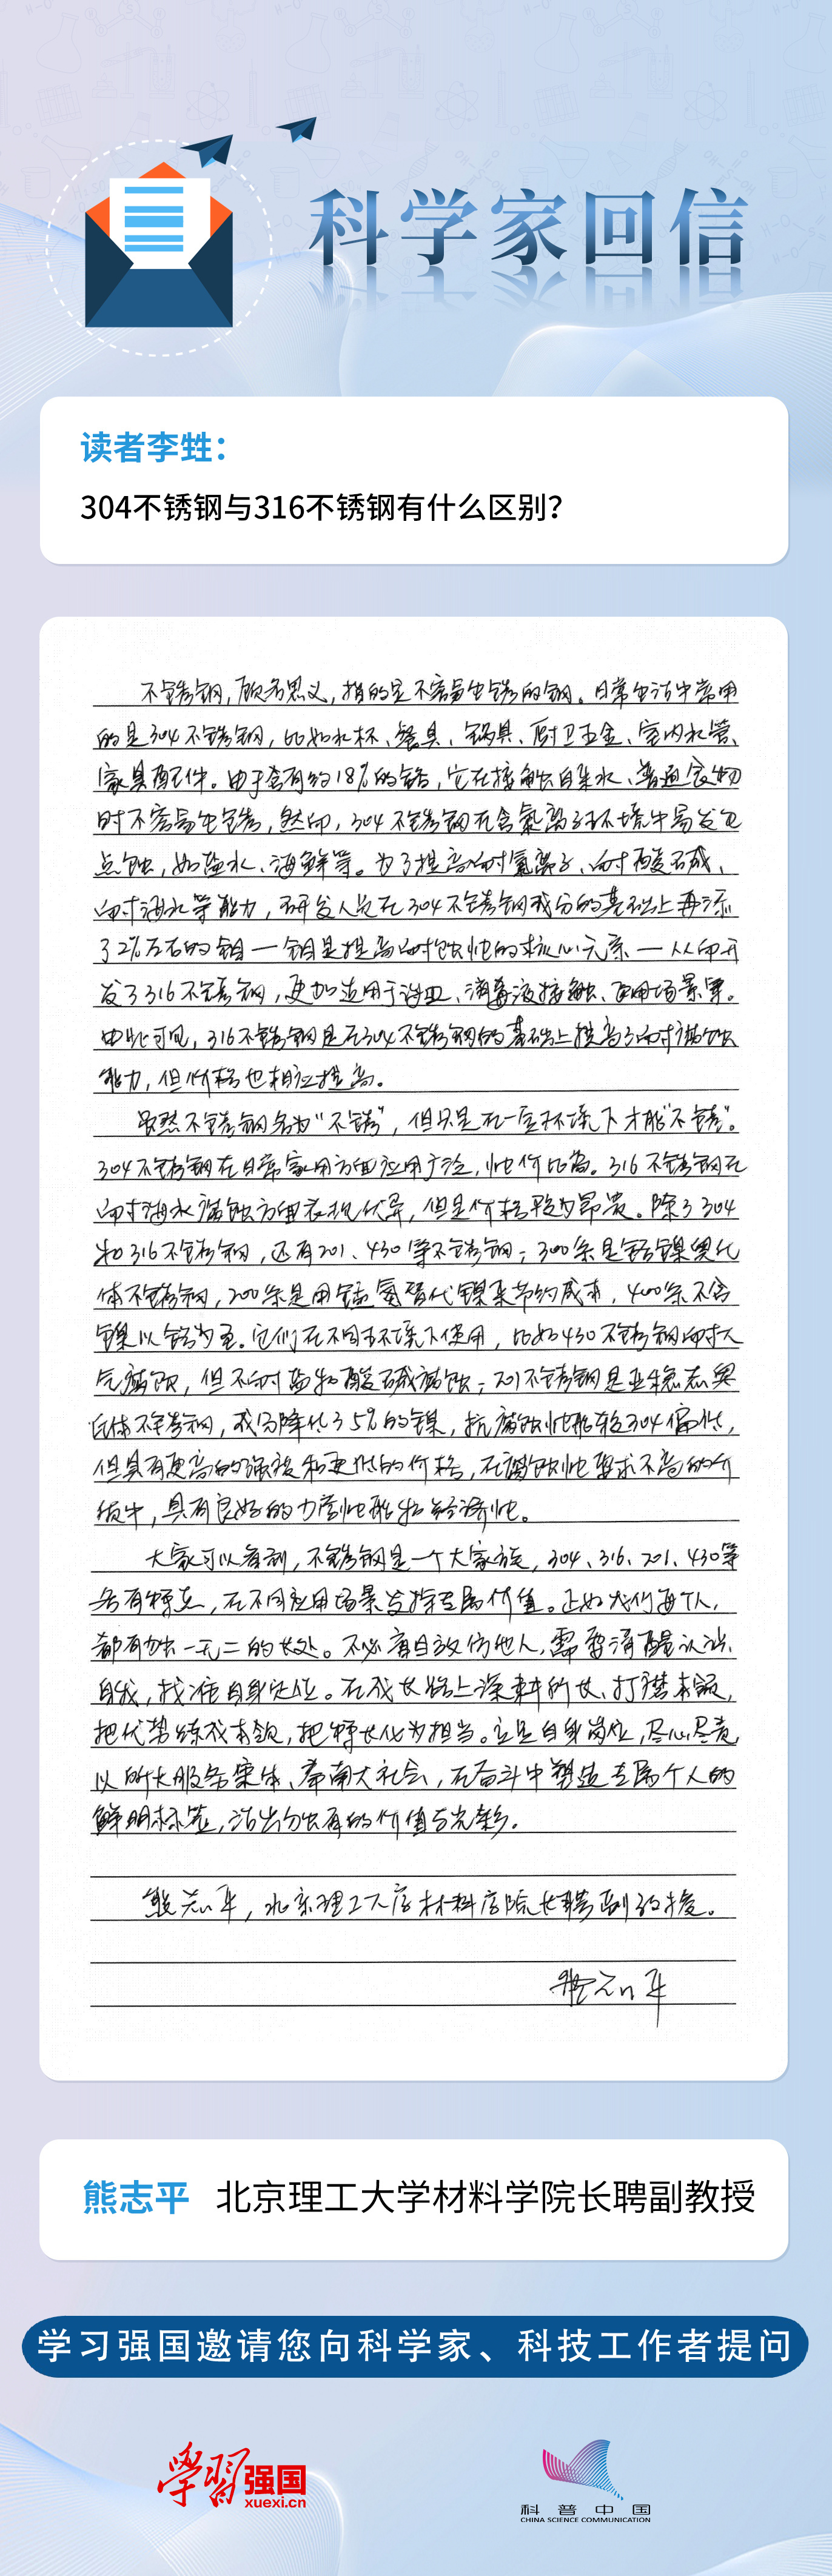 科学家回信
读者李甡：
304不锈钢与316不锈钢有什么区别？
不锈钢，顾名思义，指的是不容易生锈的钢。日常生活中常用
的是304不锈钢，比如水杯、餐具、锅具、厨卫五金、室内水管、
家具配件。由于含有约18%的铬，它在接触自来水、普通食物
时不容易生锈，然而，304不锈钢在含氯离子环境中易发生
点蚀，如盐水、海鲜等。为了提高耐氯离子、耐酸碱、
耐海水等能力，研发人员在304不锈钢成分的基础上再添
了2%左右的钼—钼是提高耐蚀性的核心元素—从而开
发了316不锈钢，更加适用于 、消毒液接触、 用场景 。
由此可见，316不锈钢是在304不锈钢的基础上提高了耐腐蚀
能力，但价格也相应提高。
虽然不锈钢名为“不锈”，但只是在一定环境下才能“不锈”。
304不锈钢在日常家用方面应用广泛，性价比高。316不锈钢在
耐海水腐蚀方面表现优异，但是价格较为昂贵。除了304
和316不锈钢，还有201、430等不锈钢；300系是铬镍奥氏
体不锈钢，200系是用锰氮替代镍来节约成本，400系不含
镍以铬为主。它们在不同环境下使用，比如430不锈钢耐大
气腐蚀，但不耐盐和酸碱腐蚀；201不锈钢是亚稳态奥
氏体不锈钢，成分降低了5%的镍，抗腐蚀性能较304偏低，
但具有更高的强度和更低的价格，在腐蚀性要求不高的介
质中，具有良好的力学性能和经济性。
大家可以看到，不锈钢是一个大家族，304、316、201、430等
各有特点，在不同应用场景发挥专属价值。正如我们每个人，
都有独一无二的长处。不必盲目效仿他人，需要清醒认识
自我，找准自身定位。在成长路上深耕所长、打磨本领，
把优势练成本领，把特长化为担当。立足自身岗位，尽心尽责，
以所长服务集体、奉献大社会，在奋斗中塑造专属个人的
鲜明标签，活出独有的价值与光彩。
熊志平，北京理工大学材料学院长聘副教授。
熊志平
熊志平 北京理工大学材料学院长聘副教授
学习强国邀请您向科学家、科技工作者提问
学习强国
xuexi.cn
科普中国
CHINA SCIENCE COMMUNICATION